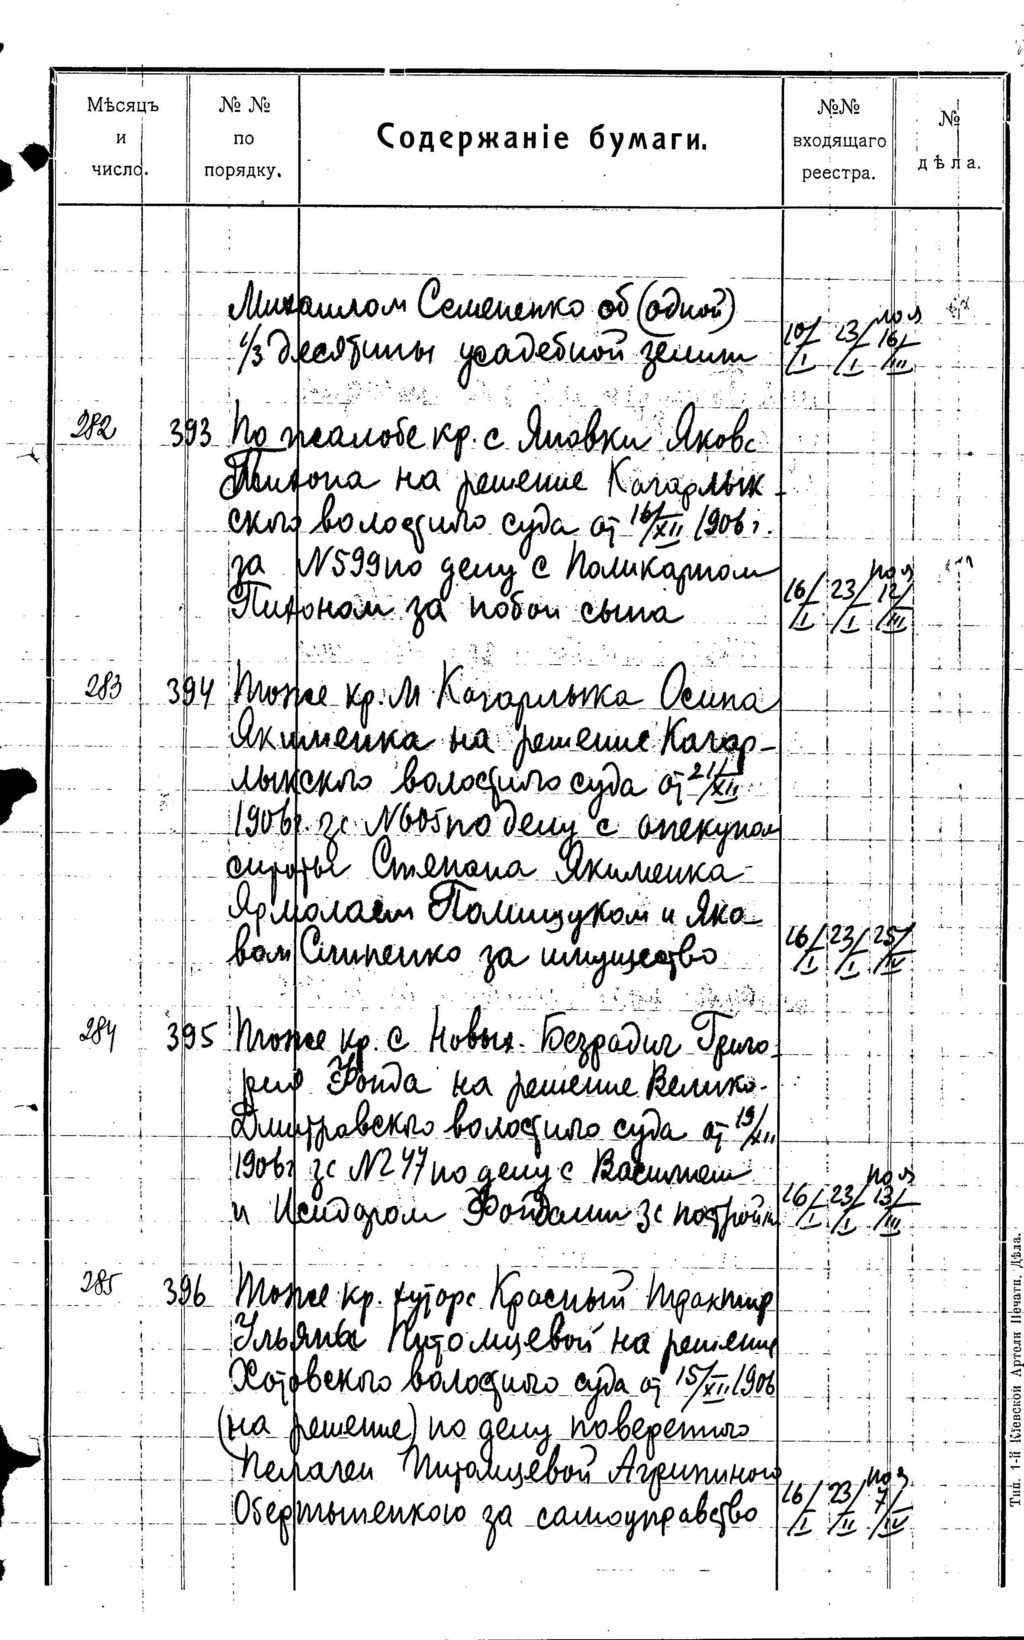 Мѣсяцъ и число.
№ № по порядку.
Содержаніе бумаги.
№№ входящаго реестра.
№ дѣла.
Михаилом Семененко об (одной)
1/3 десятины усадебной земли 10/I 23/I пол 16/III
282 393 По жалобе кр. с Яновки Якова
Тихона на решение Кагарлык-
ского волостного суда от 16/XII 1906 г.
за N 599 по делу с Поликарпом
Тихоном за побои сына 16/I 23/I пол 12/III
283 394 Тоже кр. М Кагарлыка Осипа
Якименка на решение Кагар-
лыкского волостного суда от 21/XII
1906 г. за N 605 по делу с опекуном
сироты Степана Якименка
Ярмолаем Полищуком и Яко-
вом за имущество 16/I 23/I 25/IV
284 395 Тоже кр. с Новых Безрадич Григо-
рия Фонда на решение Велико-
Дмитровского волостного суда от 19/XII
1906 г за N 247 по делу с Василием
и Исидором Фондами за постройки 16/I 23/I пол 13/III
285 396 Тоже кр. хутора Красный Трактир
Ульяны на решение
Хотовского волостного суда от 15/XII 1906
(на решение) по делу поверенного
Пелагеи Агрипиного
за самоуправство 16/I 23/II пол 7/IV
Тип. 1-й Кіевской Артели Печатн. Дѣла.